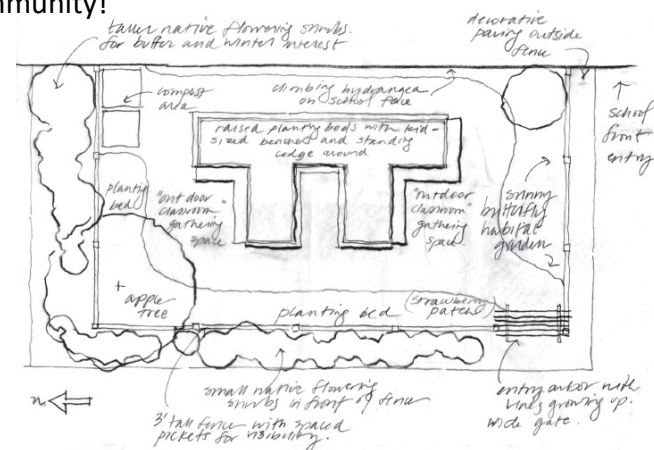 mmunity!
taller native flowering shrubs.
for buffer and winter interest
decorative
paving outside
fence
compost
area
climbing hydrangea
on school fence
school
front
entry
raised planting beds with kid-
sized benches and standing
ledge around
planting
bed
"outdoor
classroom"
gathering
space
"outdoor
classroom"
gathering
space
sunny
butterfly
habitat
garden
apple
tree
planting bed
(strawberry
patch)
small native flowering
shrubs in front of fence
n
3' tall fence with spaced
pickets for visibility.
entry arbor with
vines growing up.
wide gate.